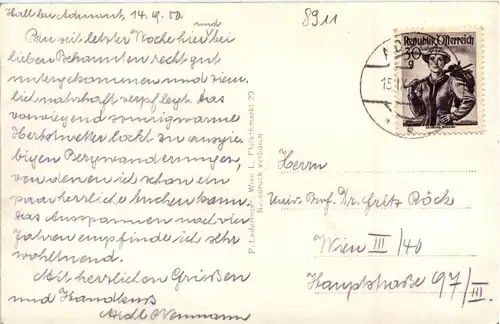 Hall bei Admont, 14.9.50.
8911
Bin seit letzter Woche hier bei und
lieben Bekannten recht gut
untergekommen und ziem-
lich nahrhaft verpflegt. Das
vorwiegend sonnig warme
Herbstwetter lockt zu ausgie-
bigen Bergwanderungen,
von denen ich schon ein
paar herrliche buchen kann.
Das Ausspannen nach vier
Jahren empfinde ich sehr
wohltuend.
Mit herzlichen Grüßen
und Handkuss
Neumann
P. Ledermann, Wien I., Fleischmarkt 22
Nachdruck verboten
Republik Österreich
30
g
Herrn
Univ. Prof. Dr. Fritz Böck
Wien III/40
Hauptstraße 97/III.